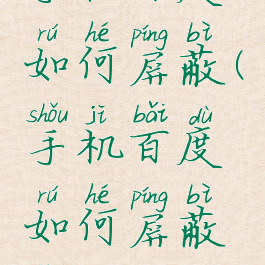 rú hé píng bì
如何屏蔽(
shǒu jī bǎi dù
手机百度
rú hé píng bì
如何屏蔽